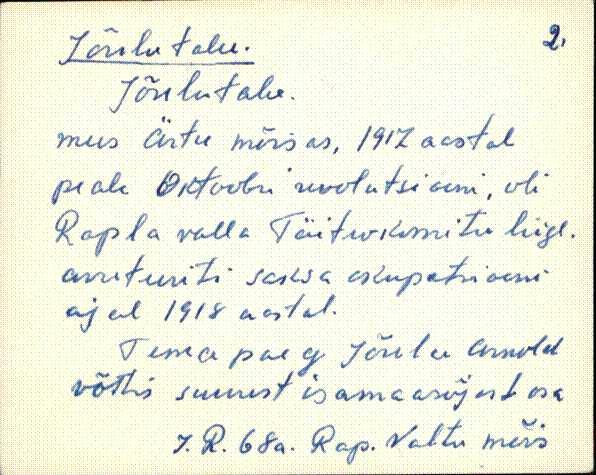 Jõulu talu. 2.
Jõulu talu.
mees Ärtu mõisas, 1917 aastal
peale Oktoobri revolutsiooni, oli
Rapla valla Täitevkomitee liige.
arreteeriti saksa okupatsiooni
ajal 1918 aastal.
Tema poeg Jõulu Arnold
võttis suurest isamaasõjast osa
J. R. 68a. Rap. Valtu mõis